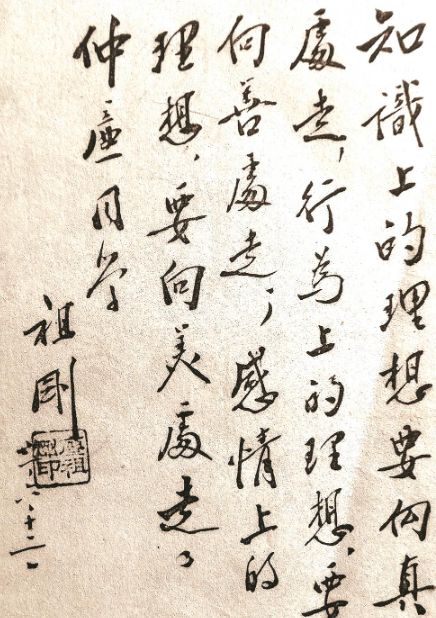 知識上的理想要向真
處走，行為上的理想，要
向善處走；感情上的
理想，要向美處走。
仲廉同學
祖剛
六、十二、